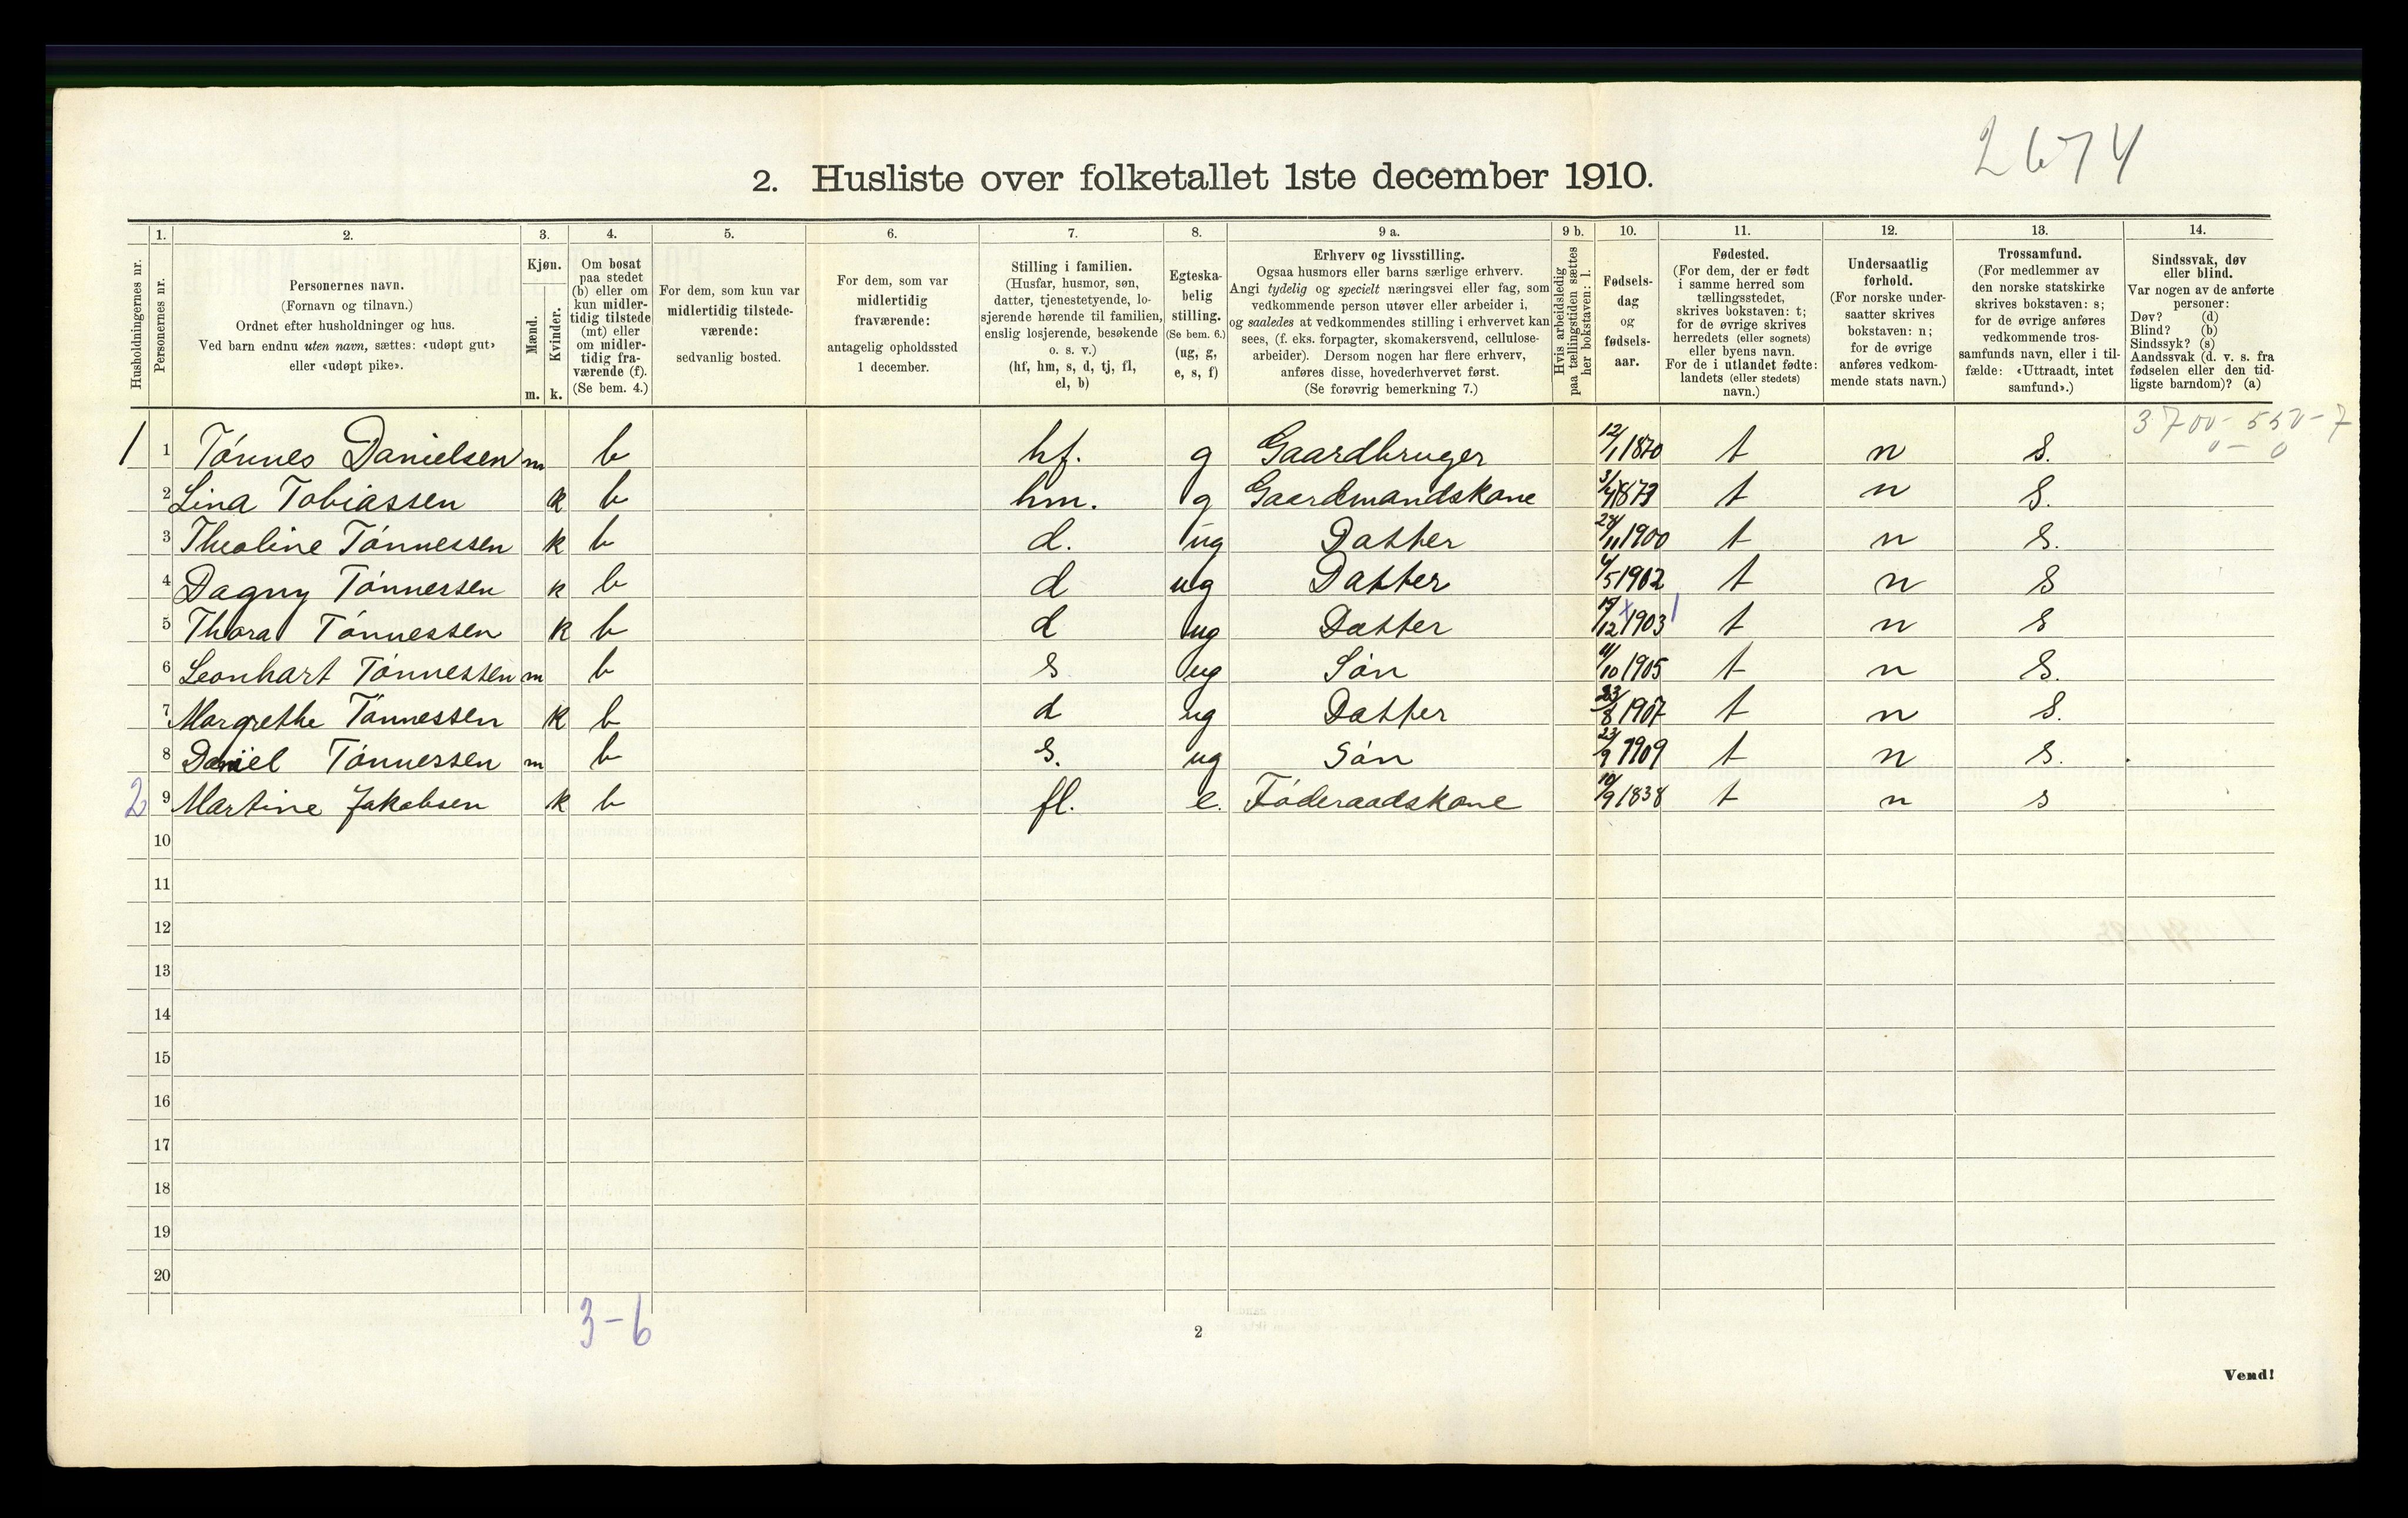 2674
2. Husliste over folketallet 1ste december 1910.
1. 2. 3. 4. 5. 6. 7. 8. 9 a. 9 b. 10. 11. 12. 13. 14.
Husholdningernes nr.
Personernes nr.
Personernes navn.
(Fornavn og tilnavn.)
Ordnet efter husholdninger og hus.
Ved barn endnu uten navn, sættes: «udøpt gut»
eller «udøpt pike».
Kjøn.
Mænd.
Kvinder.
m. k.
Om bosat
paa stedet
(b) eller om
kun midler-
tidig tilstede
(mt) eller
om midler-
tidig fra-
værende (f).
(Se bem. 4.)
For dem, som kun var
midlertidig tilstede-
værende:
sedvanlig bosted.
For dem, som var
midlertidig
fraværende:
antagelig opholdssted
1 december.
Stilling i familien.
(Husfar, husmor, søn,
datter, tjenestetyende, lo-
sjerende hørende til familien,
enslig losjerende, besøkende
o. s. v.)
(hf, hm, s, d, tj, fl,
el, b)
Egteska-
belig
stilling.
(Se bem. 6.)
(ug, g,
e, s, f)
Erhverv og livsstilling.
Ogsaa husmors eller barns særlige erhverv.
Angi tydelig og specielt næringsvei eller fag, som
vedkommende person utøver eller arbeider i,
og saaledes at vedkommendes stilling i erhvervet kan
sees, (f. eks. forpagter, skomakersvend, cellulose-
arbeider). Dersom nogen har flere erhverv,
anføres disse, hovederhvervet først.
(Se forøvrig bemerkning 7.)
Hvis arbeidsledig
paa tællingstiden sættes
her bokstaven: l.
Fødsels-
dag
og
fødsels-
aar.
Fødested.
(For dem, der er født
i samme herred som
tællingsstedet,
skrives bokstaven: t;
for de øvrige skrives
herredets (eller sognets)
eller byens navn.
For de i utlandet fødte:
landets (eller stedets)
navn.)
Undersaatlig
forhold.
(For norske under-
saatter skrives
bokstaven: n;
for de øvrige
anføres vedkom-
mende stats navn.)
Trossamfund.
(For medlemmer av
den norske statskirke
skrives bokstaven: s;
for de øvrige anføres
vedkommende tros-
samfunds navn, eller i til-
fælde: «Uttraadt, intet
samfund».)
Sindssvak, døv
eller blind.
Var nogen av de anførte
personer:
Døv? (d)
Blind? (b)
Sindssyk? (s)
Aandssvak (d. v. s. fra
fødselen eller den tid-
ligste barndom)? (a)
1 1 Tónnes Danielsen m b hf. g Gaardbruger 12/1 1870 t n S.
2 Lina Tobiassen k b hm. g Gaardmandskone 3/4 1873 t n S.
3 Theoline Tónnessen k b d. ug Datter 28/11 1900 t n S.
4 Dagny Tónnessen k b d ug Datter 4/5 1902 t n S
5 Thora Tónnessen k b d ug Datter 15/12 1903 t n S
6 Leonhart Tónnessen m b s ug Són 11/10 1905 t n S.
7 Margrethe Tónnessen k b d ug Datter 23/8 1907 t n S.
8 Daniel Tónnessen m b s. ug Són 23/9 1909 t n S.
2 9 Martine Jakobsen k b fl. e. Fóderaadskone 10/9 1838 t n s
10
11
12
13
14
15
16
17
18
19
20
3-6
2
Vend!